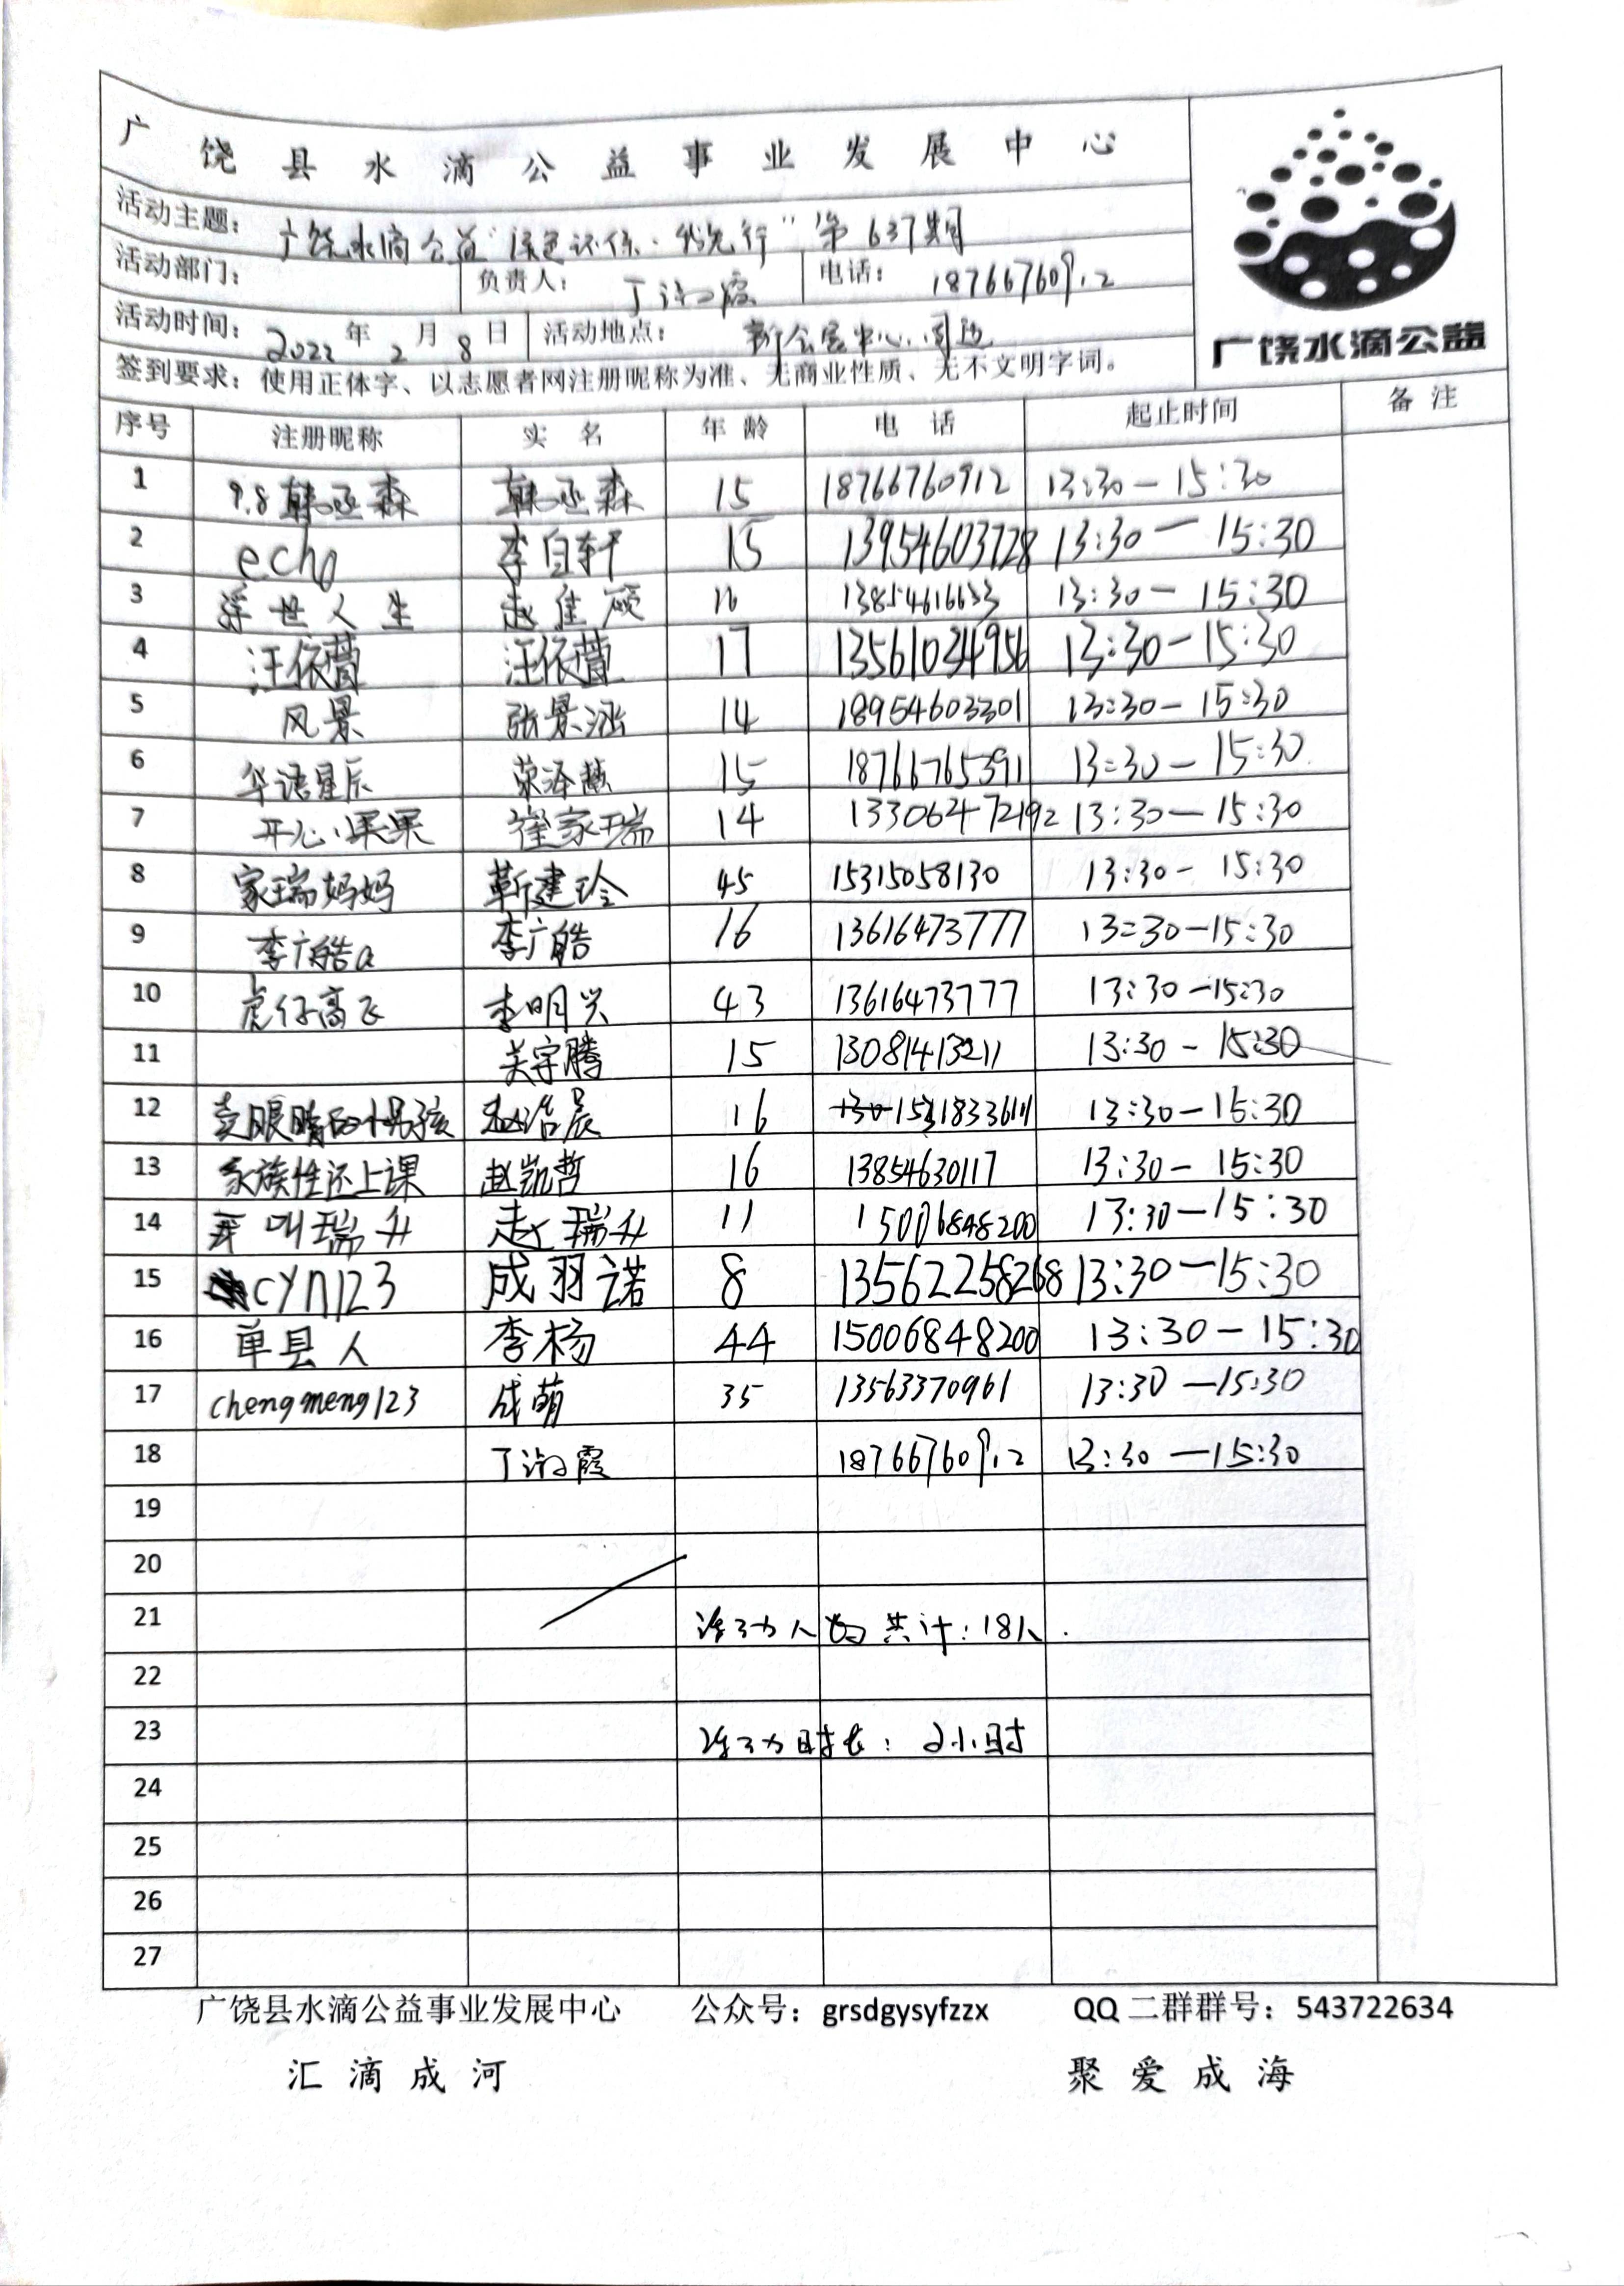 广饶县水滴公益事业发展中心
活动主题：广饶水滴公益“绿色环保·我先行”第637期
活动部门： 负责人：丁淑霞 电话：18766760912
活动时间：2022年2月8日 活动地点：新会展中心周边
签到要求：使用正体字、以志愿者网注册昵称为准、无商业性质、无不文明字词。
广饶水滴公益
序号 注册昵称 实名 年龄 电话 起止时间 备注
1 9.8韩丞森 韩丞森 15 18766760912 13:30-15:30
2 echo 李自轩 15 13954603728 13:30-15:30
3 浮世人生 赵佳硕 16 13854616633 13:30-15:30
4 汪依萱 汪依萱 17 13561034956 13:30-15:30
5 风景 张景涵 14 18954603301 13:30-15:30
6 华语星辰 荣泽慧 15 18766765391 13:30-15:30
7 开心果果 崔家瑞 14 13306472192 13:30-15:30
8 家瑞妈妈 靳建玲 45 15315058130 13:30-15:30
9 李广皓a 李广皓 16 13616473777 13:30-15:30
10 虎仔高飞 李明兴 43 13616473777 13:30-15:30
11 宇腾 15 13081413211 13:30-15:30
12 卖眼睛的小男孩 赵浩辰 16 13:30-15:30
13 家族性还上课 赵凯哲 16 13854630117 13:30-15:30
14 叫瑞升 赵瑞升 11 15006848200 13:30-15:30
15 cyn123 成羽诺 8 13562258268 13:30-15:30
16 单县人 李杨 44 15006848200 13:30-15:30
17 chengmeng123 成萌 35 13563370961 13:30-15:30
18 丁淑霞 18766760912 13:30-15:30
19
20
21 活动人数共计：18人.
22
23 活动时长：2小时
24
25
26
27
广饶县水滴公益事业发展中心 公众号：grsdgysyfzzx QQ二群群号：543722634
汇滴成河 聚爱成海